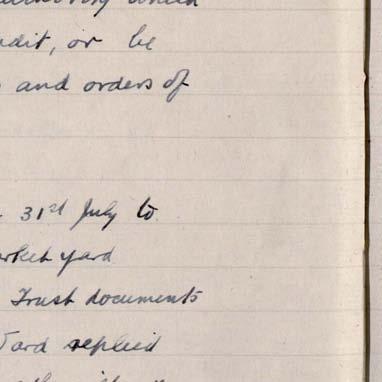 edit, or be
and orders of
31st July to
arket yard
Trust documents
replied